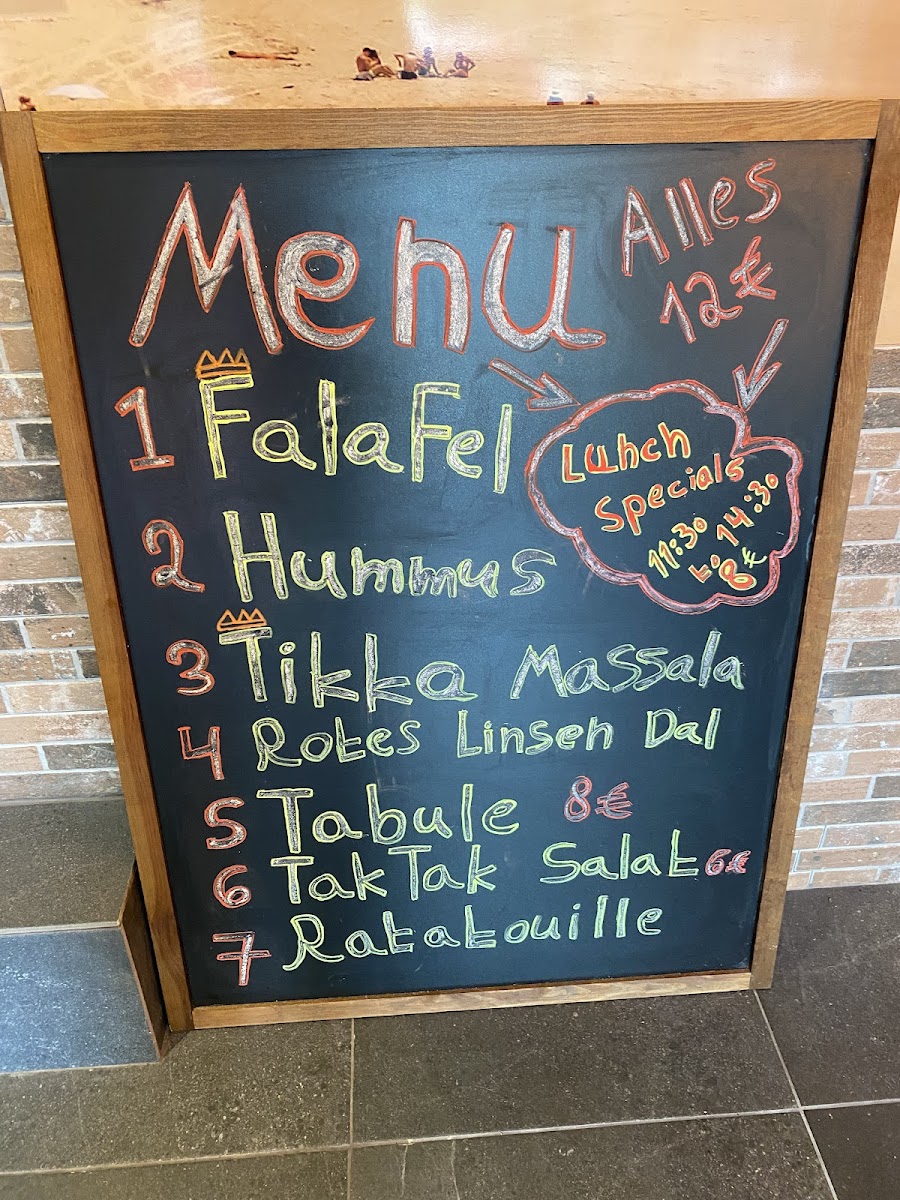 Menu
Alles
12€
1 Falafel
Lunch
Specials
11:30
to 14:30
8€
2 Hummus
3 Tikka Massala
4 Rotes Linsen Dal
5 Tabule 8€
6 TakTak Salat 6€
7 Ratatouille